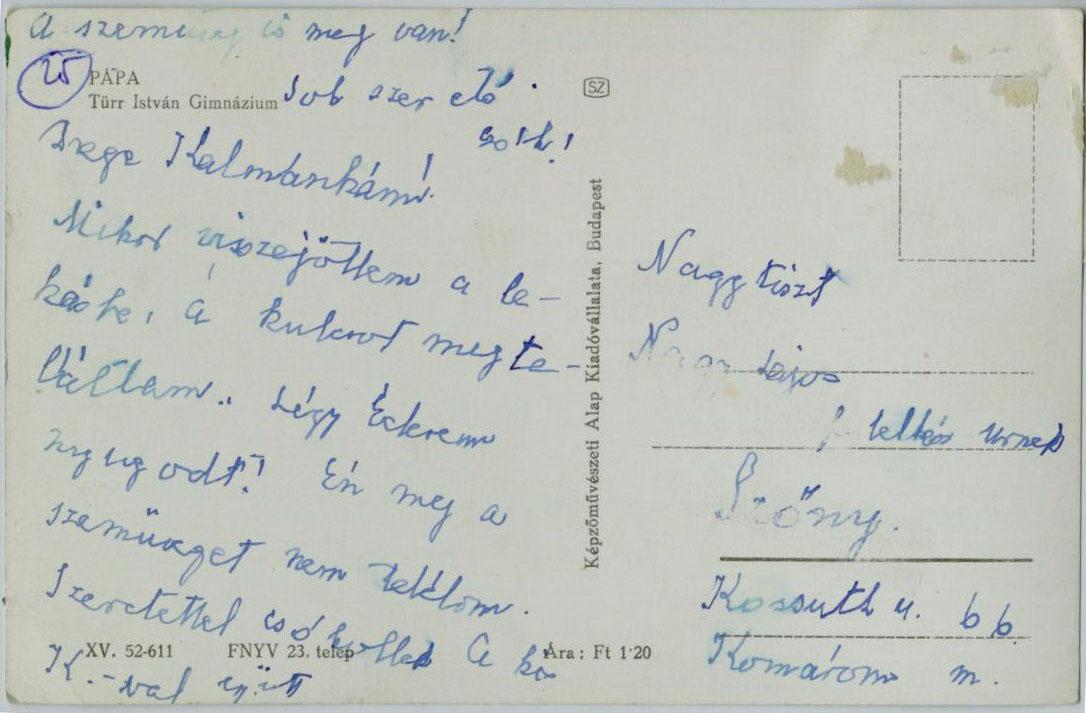 A szemüveg is meg van!
25
PÁPA
Türr István Gimnázium
Sok szer ető
SZ
Kalmánkám!
Mikor visszejöttem a la-
kásbe, a kulcsot megte-
láltam.. Légy
nyugodt! Én meg a
szemüveget nem telálom.
Szeretettel csókollak A kis
K.-val együtt
XV. 52-611
FNYV 23. telep
Ára: Ft 1·20
Képzőművészeti Alap Kiadóvállalata, Budapest
Nagytiszt
Nagy Lajos
lelkés urnak
Szőny.
Kossuth u. 66
Komárom m.